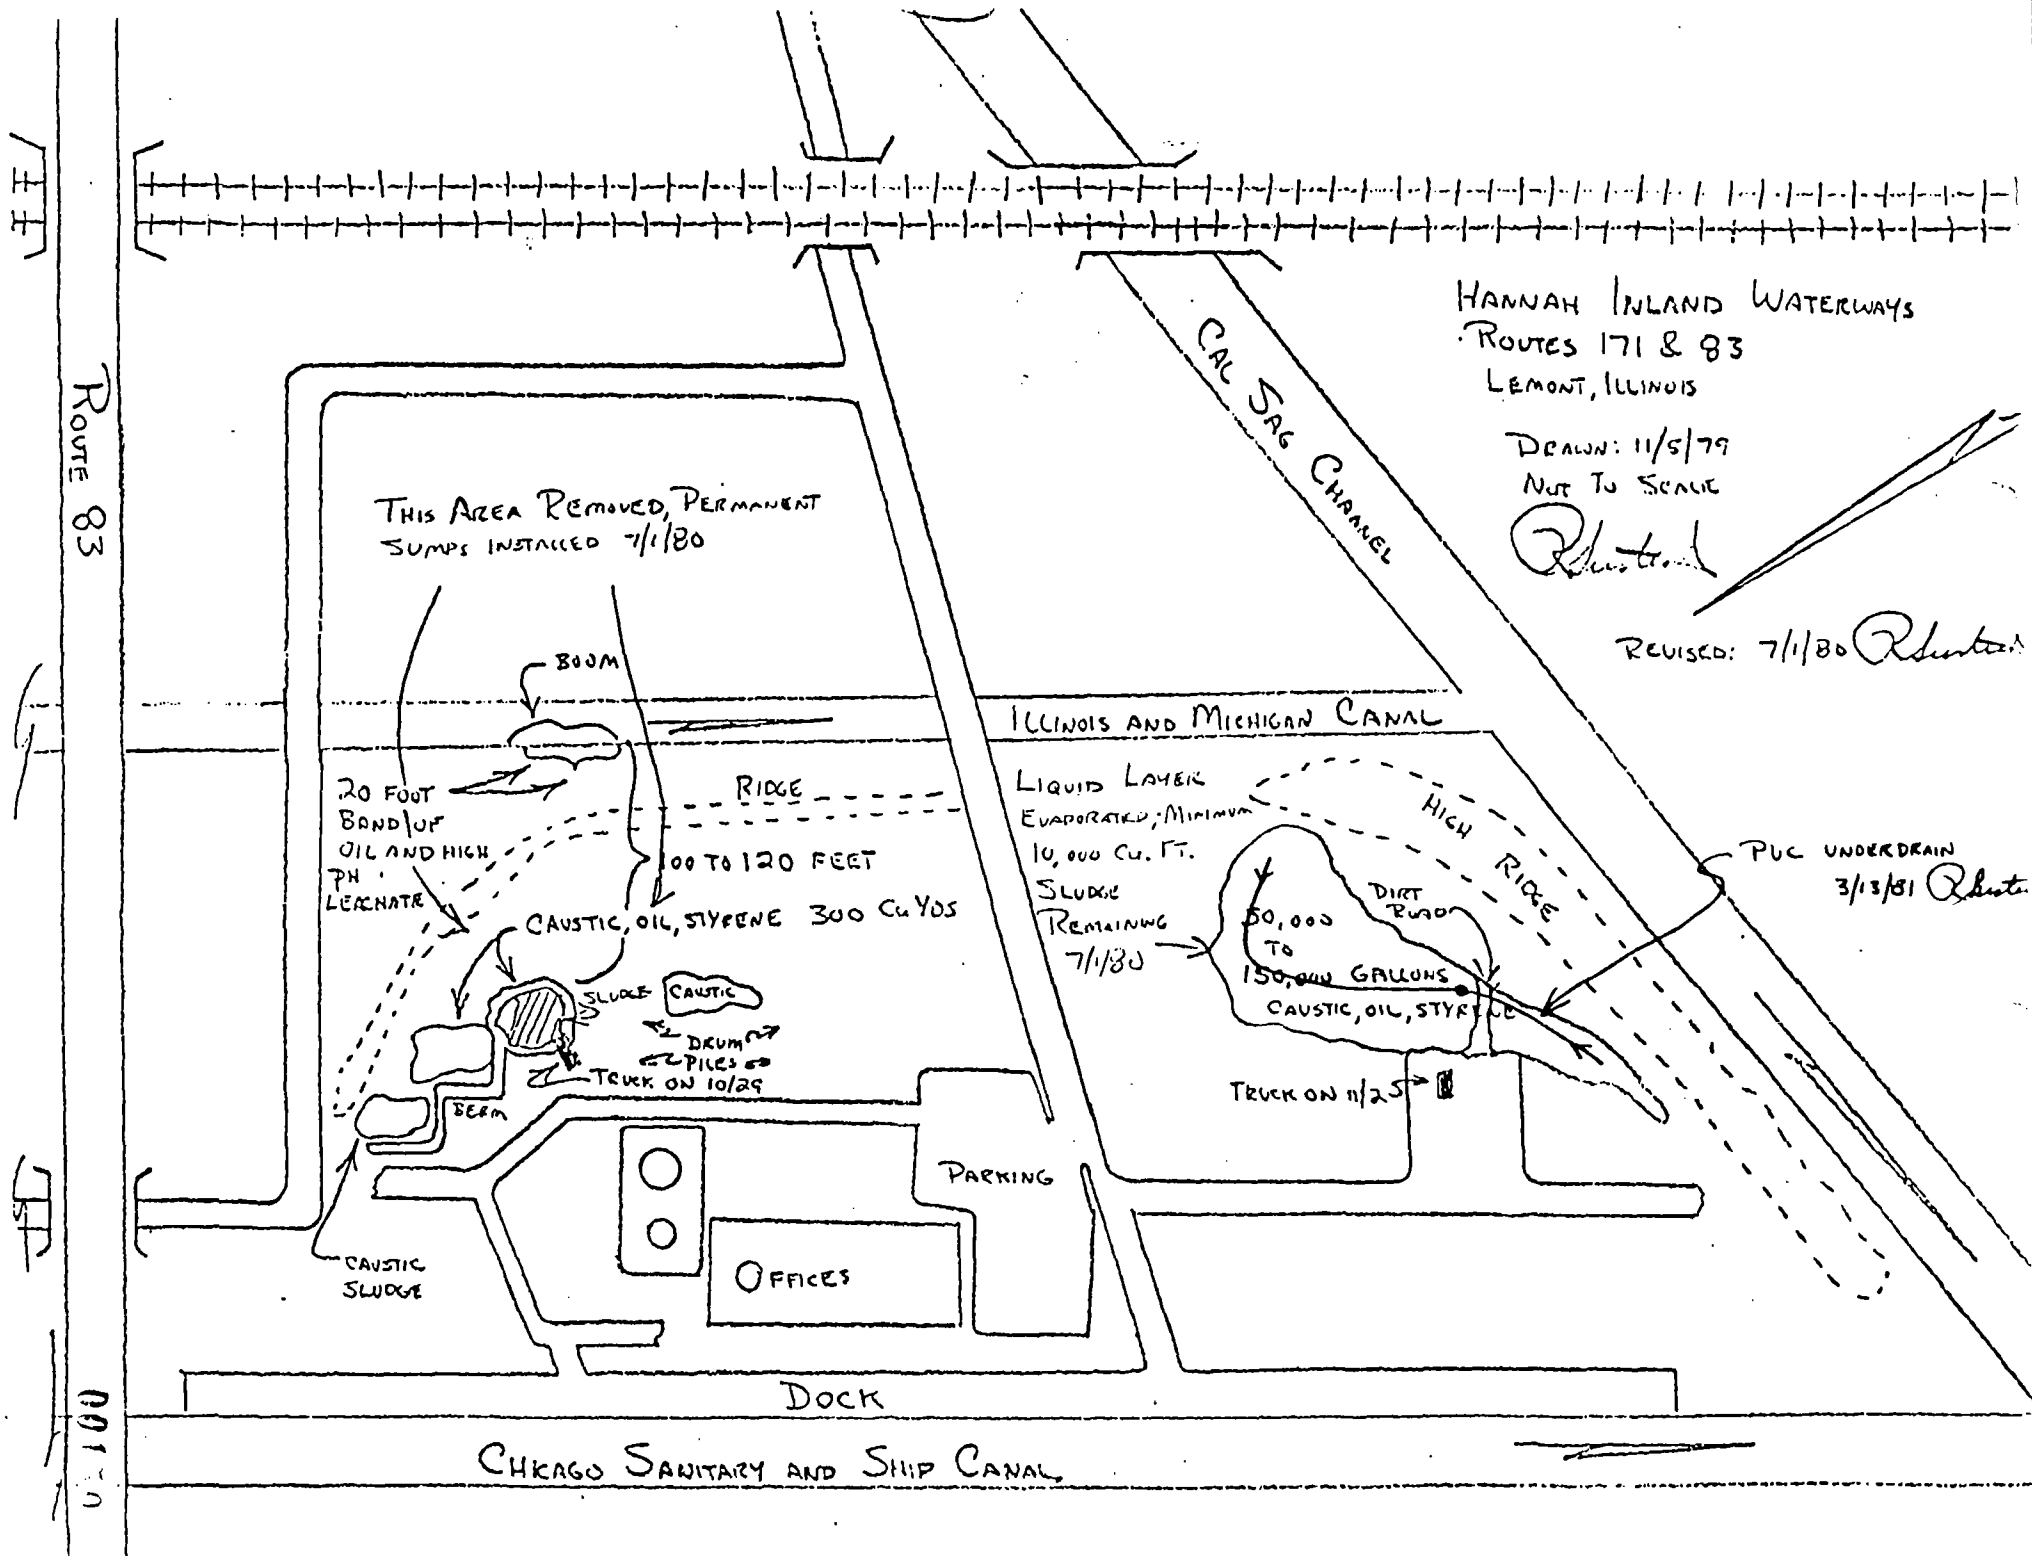 HANNAH INLAND WATERWAYS
ROUTES 171 & 83
LEMONT, ILLINOIS
DRAWN: 11/5/79
NOT TO SCALE
REVISED: 7/1/80
CAL SAG CHANNEL
ROUTE 83
THIS AREA REMOVED, PERMANENT
SUMPS INSTALLED 7/1/80
BOOM
ILLINOIS AND MICHIGAN CANAL
20 FOOT
BAND OF
OIL AND HIGH
PH
LEACHATE
RIDGE
100 TO 120 FEET
CAUSTIC, OIL, STYRENE 300 CU YDS
SLUDGE
CAUSTIC
DRUM
PILES
TRUCK ON 10/29
BERM
CAUSTIC
SLUDGE
LIQUID LAYER
EVAPORATED; MINIMUM
10,000 CU. FT.
SLUDGE
REMAINING
7/1/80
HIGH RIDGE
DIRT
ROAD
50,000
TO
150,000 GALLONS
CAUSTIC, OIL, STYRENE
PVC UNDERDRAIN
3/13/81
TRUCK ON 11/25
PARKING
OFFICES
DOCK
CHICAGO SANITARY AND SHIP CANAL